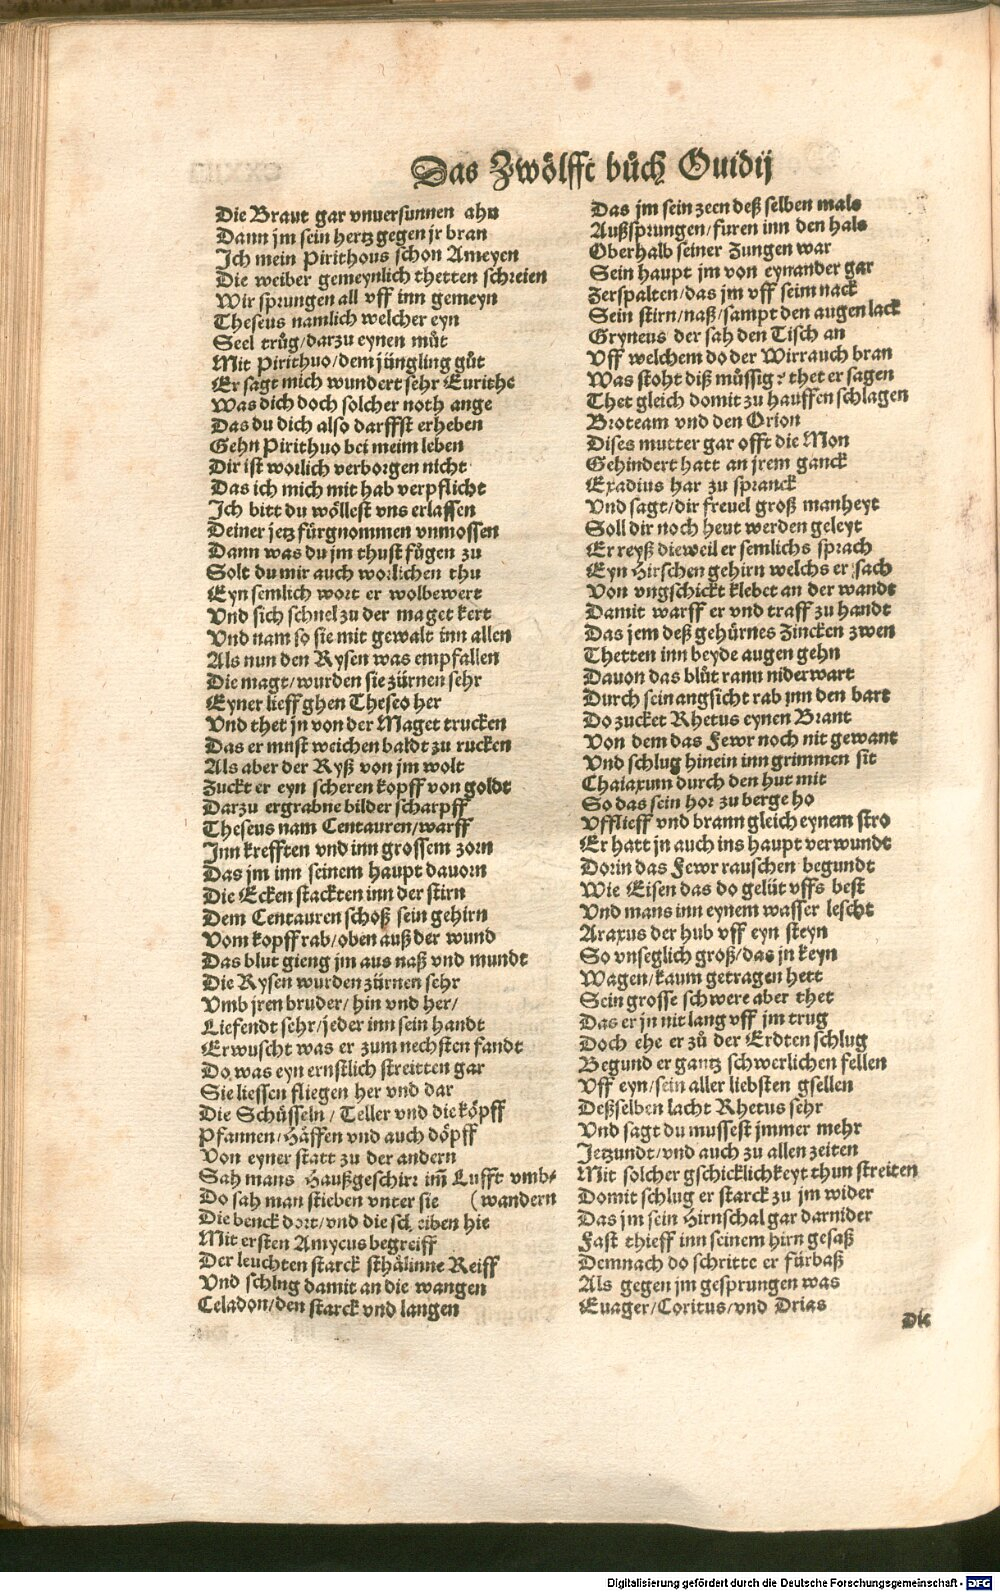 Das Zwölfft bůch Ouidij
Die Braut gar vnuersunnen ahn
Dann jm sein hertz gegen jr bran
Ich mein Pirithous schon Ameyen
Die weiber gemeynlich thetten schreien
Wir sprungen all vff inn gemeyn
Theseus namlich welcher eyn
Seel trůg/darzu eynen můt
Mit Pirithuo/dem jüngling gůt
Er sagt mich wundert sehr Eurithe
Was dich doch solcher noth ange
Das du dich also darffst erheben
Gehn Pirithuo bei meim leben
Dir ist worlich verborgen nicht
Das ich mich mit hab verpflicht
Ich bitt du wöllest vns erlassen
Deiner jetz fürgnommen vnmossen
Dann was du jm thust fůgen zu
Solt du mir auch worlichen thu
Eyn semlich wort er wolbewert
Vnd sich schnel zu der maget kert
Vnd nam so sie mit gewalt inn allen
Als nun den Rysen was empfallen
Die magt/wurden sie zürnen sehr
Eyner lieff ghen Theseo her
Vnd thet jn von der Maget trucken
Das er must weichen baldt zu rucken
Als aber der Ryß von jm wolt
Zuckt er eyn scheren kopff von goldt
Darzu ergrabne bilder scharpff
Theseus nam Centauren/warff
Inn krefften vnd inn grossem zorn
Das jm inn seinem haupt dauorn
Die Ecken stackten inn der stirn
Dem Centauren schoß sein gehirn
Vom kopff rab/oben auß der wund
Das blut gieng jm aus naß vnd mundt
Die Rysen wurden zürnen sehr
Vmb jren bruder/hin vnd her/
Liefendt sehr/jeder inn sein handt
Erwuscht was er zum nechsten fandt
Do was eyn ernstlich streitten gar
Sie liessen fliegen her vnd dar
Die Schüsseln/Teller vnd die köpff
Pfannen/Häffen vnd auch döpff
Von eyner statt zu der andern
Sah mans Haußgeschirr im̄ Lufft vmb-
Do sah man stieben vnter sie (wandern
Die benck dort/vnd die scheiben hie
Mit ersten Amycus begreiff
Der leuchten starck sthälinne Reiff
Vnd schlug damit an die wangen
Celadon/den starck vnd langen
Das jm sein zeen deß selben mals
Außsprungen/furen inn den hals
Oberhalb seiner Zungen war
Sein haupt jm von eynander gar
Zerspalten/das jm vff seim nack
Sein stirn/naß/sampt den augen lack
Gryneus der sah den Tisch an
Vff welchem do der Wirrauch bran
Was stoht diß müssig? thet er sagen
Thet gleich domit zu hauffen schlagen
Broteam vnd den Orion
Dises mutter gar offt die Mon
Gehindert hatt an jrem ganck
Exadius har zu spranck
Vnd sagt/dir freuel groß manheyt
Soll dir noch heut werden geleyt
Er reyß dieweil er semlichs sprach
Eyn Hirschen gehirn welchs er sach
Von vngschickt klebet an der wandt
Damit warff er vnd traff zu handt
Das jem deß gehürnes Zincken zwen
Thetten inn beyde augen gehn
Dauon das blůt rann niderwart
Durch sein angsicht rab jnn den bart
Do zucket Rhetus eynen Brant
Von dem das Fewr noch nit gewant
Vnd schlug hinein inn grimmen sit
Chaiaxum durch den hut mit
So das sein hor zu berge ho
Vfflieff vnd brann gleich eynem stro
Er hatt jn auch ins haupt verwundt
Dorin das Fewr rauschen begundt
Wie Eisen das do gelüt vffs best
Vnd mans inn eynem wasser lescht
Araxus der hub vff eyn steyn
So vnseglich groß/das jn keyn
Wagen/kaum getragen hett
Sein grosse schwere aber thet
Das er jn nit lang vff jm trug
Doch ehe er zů der Erdten schlug
Begund er gantz schwerlichen fellen
Vff eyn/sein aller liebsten gsellen
Deßselben lacht Rhetus sehr
Vnd sagt du mussest jmmer mehr
Jetzundt/vnd auch zu allen zeiten
Mit solcher gschicklichkeyt thun streiten
Domit schlug er starck zu jm wider
Das jm sein Hirnschal gar darnider
Fast thieff inn seinem hirn gesaß
Demnach do schritte er fürbaß
Als gegen jm gesprungen was
Euager/Coritus/vnd Drias
Die
Digitalisierung gefördert durch die Deutsche Forschungsgemeinschaft - DFG